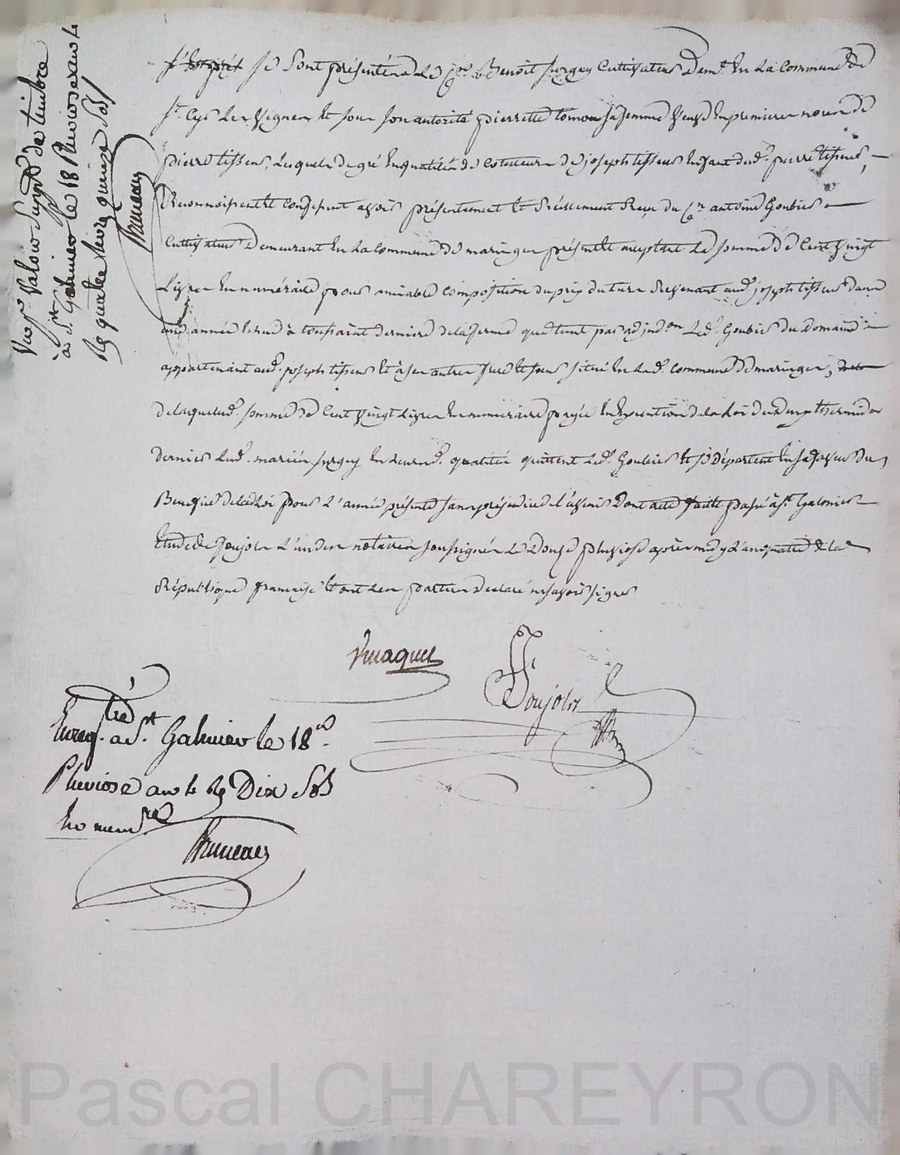 Vu pr Valoir Supplt de timbre
a St Galmier le 18 Pluviose an 4e
Rg quatre livres quinze Sols
Bruneau
Se Sont présentés le Cen Benoit Surgey Cultivateur demt En La Commune de
St Cyr Les Vignes Et sous son autorité pierrette sa femme veuve En premieres noces de
pierre tisseur, Lesquels de gré En qualité de Cotuteurs de joseph tisseur Enfant dud. pierre tisseur,
Reconnoissent Et Confessent avoir présentement Et Réellement Reçu du Cen antoine Goubier
Cultivateur demeurant En La Commune de maringes présent Et acceptant La Somme de Cent vingt
Livres En numéraire pour amiable Composition du prix du tiers Revenant aud. joseph tisseur dans
une année Echue à toussaint dernier de La ferme que tient par adjudon Led. Goubier du domaine
appartenant aud. joseph tisseur Et à ses autres frere Et sœur situé En Lad. Commune de maringes,
de Laquelle somme de Cent vingt Livres En numéraire payée En Exécution de La Loi du thermidor
dernier Lesd. mariés Surgey En leursd. qualités quittent Led. Goubier Et se départent En sa faveur du
Benefice de lad. Loi pour L'année présente sans préjudice de l'avenir Dont acte fait Et passé à St Galmier
Etude de Poujols L'un des notaires soussignés Le Douze pluviose après midy L'an quatre de La
République française Et ont Les parties declaré ne savoir signer
Vmaquet
Poujols
Enregtré a St Galmier le 18
Pluviose an 4e Rg Dix Sols
En numre
Bruneau
Pascal CHAREYRON